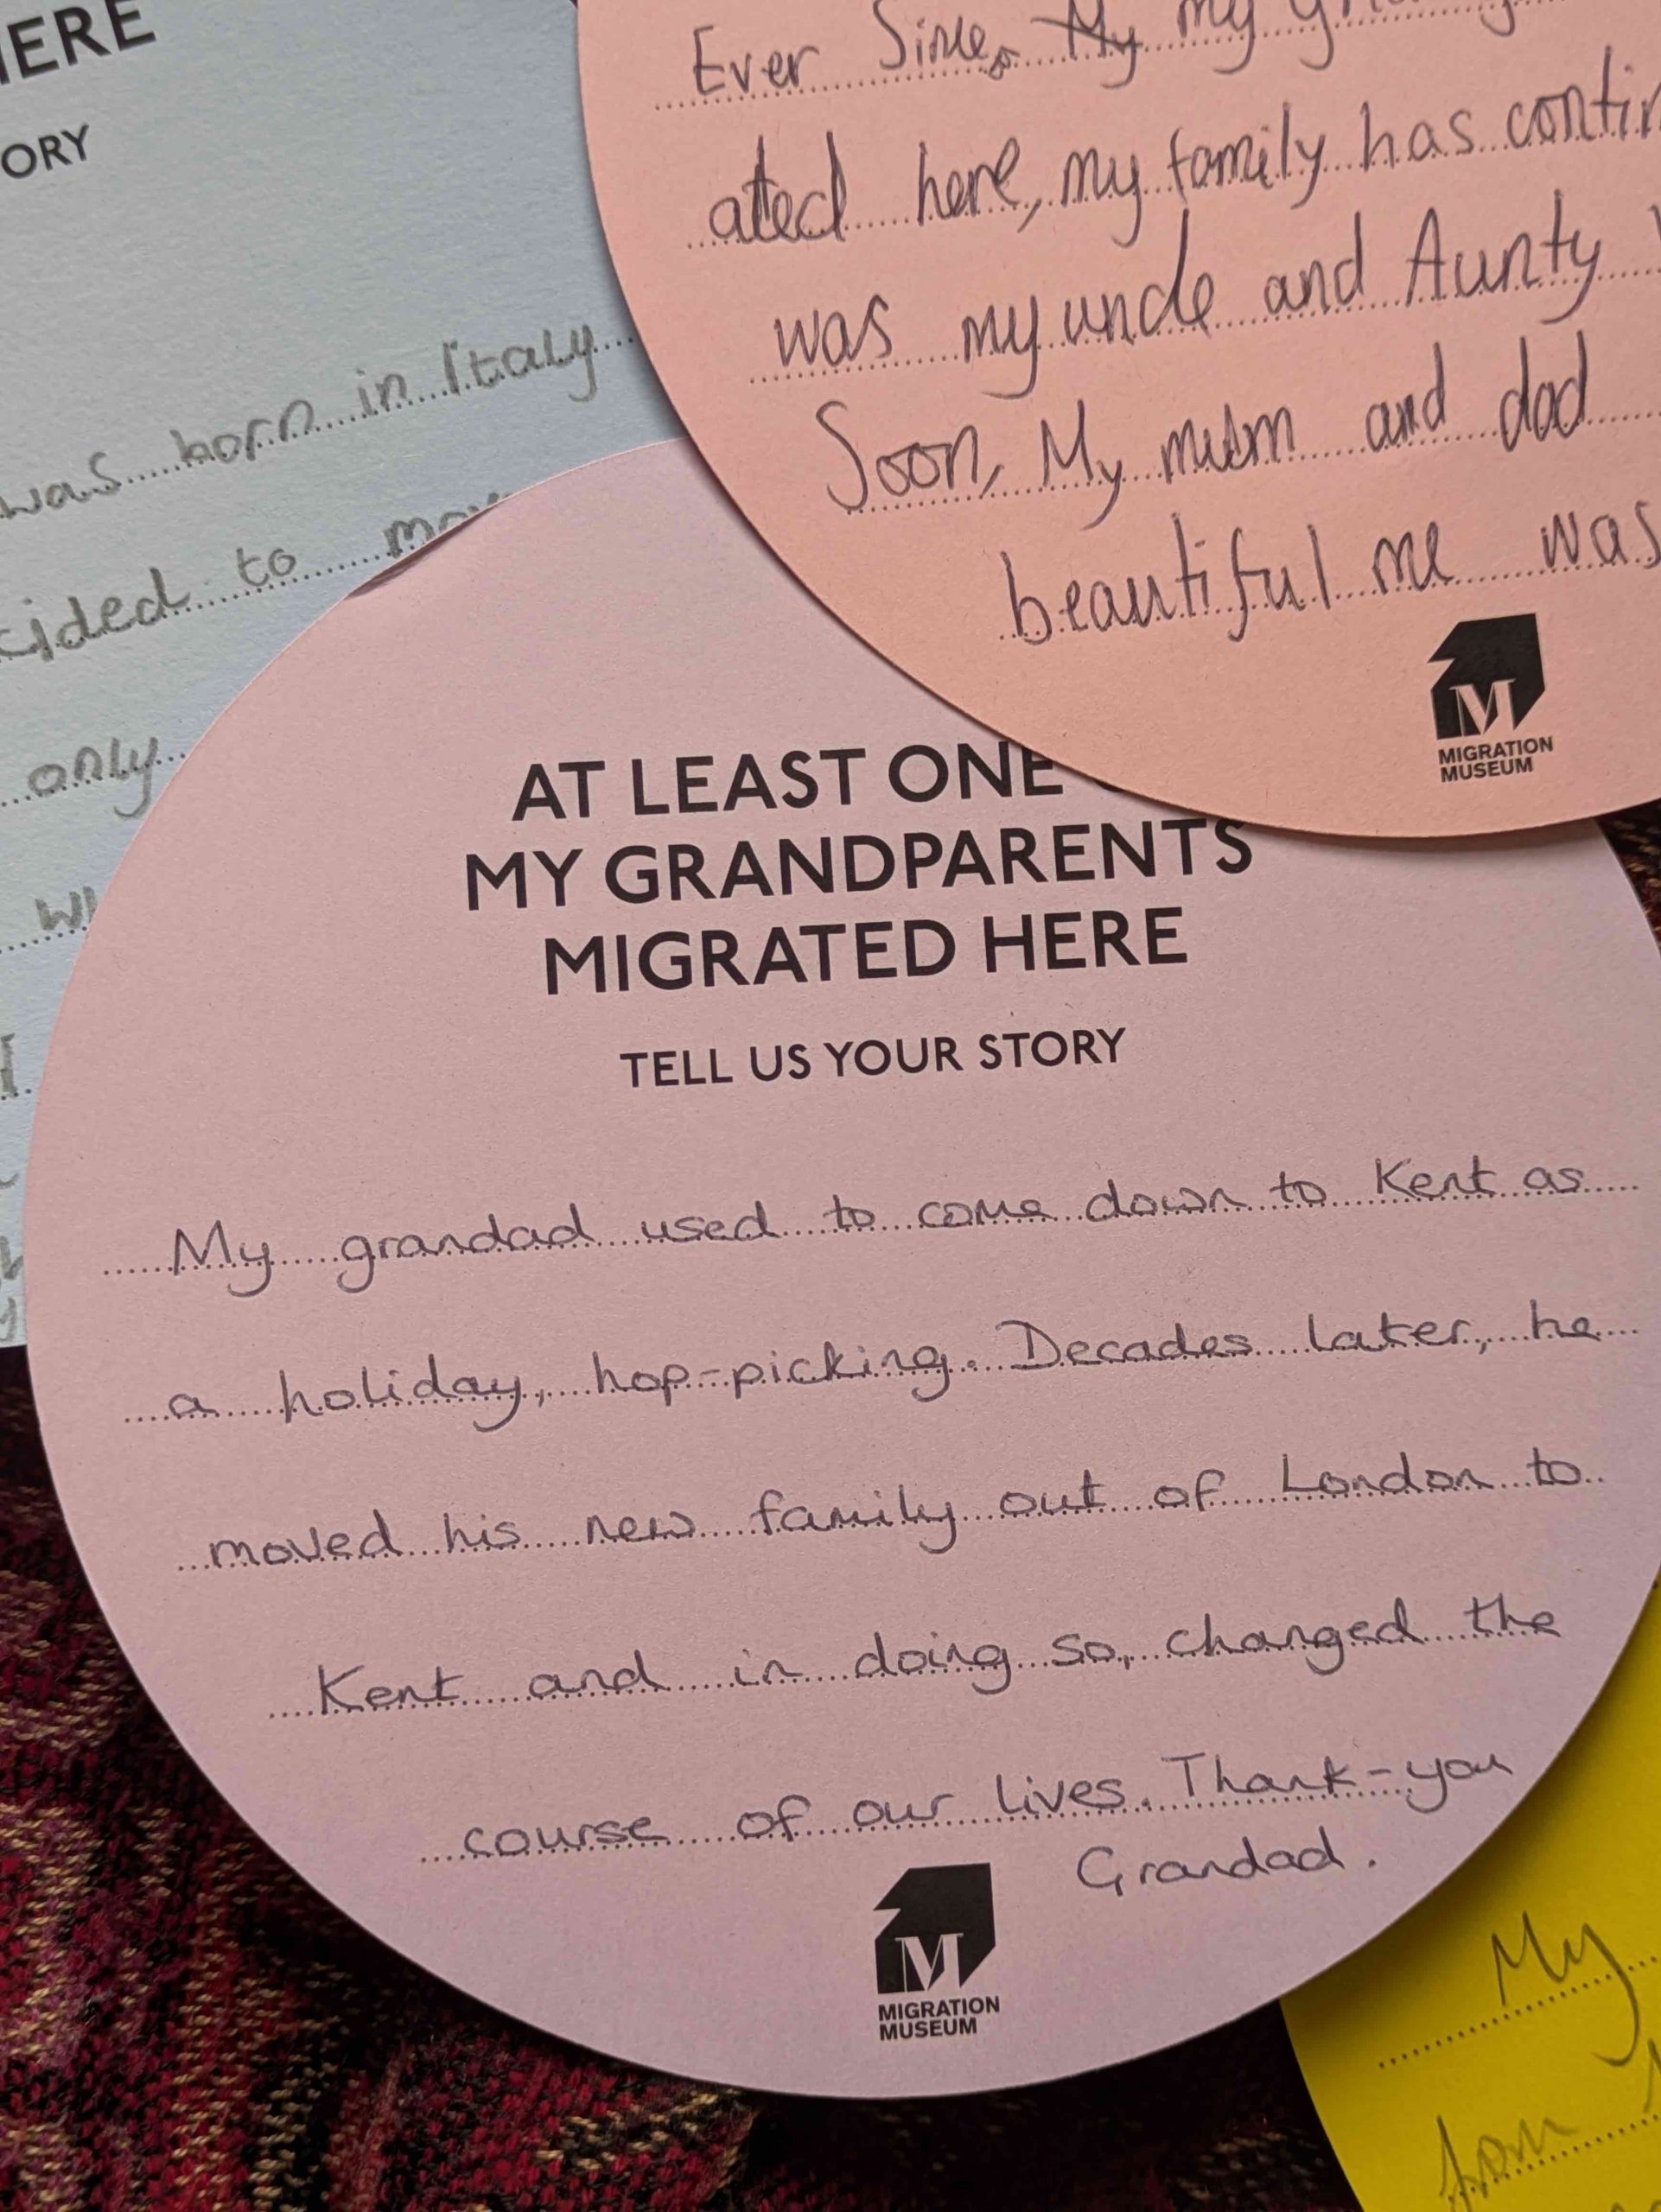 HERE
STORY
was born in Italy
to
only
Ever Since, My my
ated here, my family has
was my uncle and Aunty
Soon, My mum and dad
beautiful me was
MIGRATION
MUSEUM
AT LEAST ONE
MY GRANDPARENTS
MIGRATED HERE
TELL US YOUR STORY
My grandad used to come down to Kent as
a holiday, hop-picking. Decades later, he
moved his new family out of London to
Kent and in doing so, changed the
course of our lives. Thank-you
Grandad.
MIGRATION
MUSEUM
My